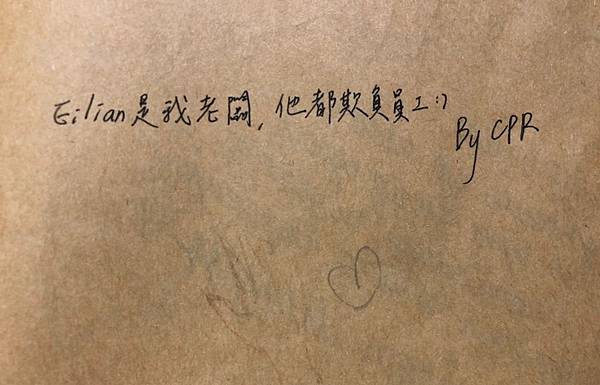 Eilian是我老闆,他都欺負員工:)
By CPR